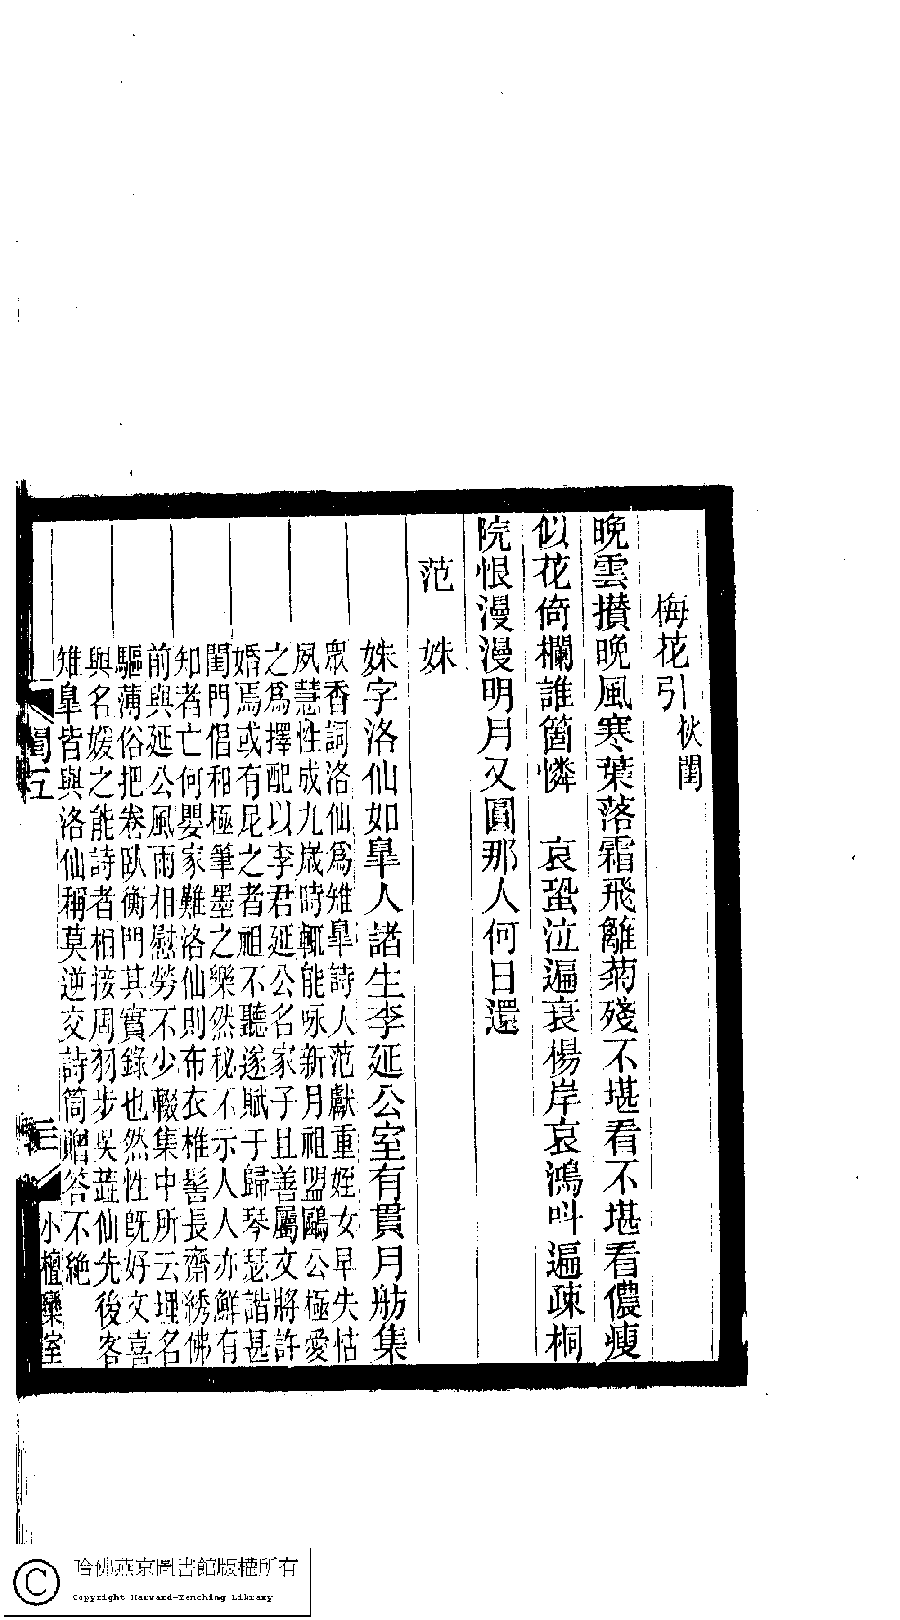 梅花引 秋閨
晚雲攢晚風寒葉落霜飛離菊殘不堪看不堪看儂瘦
似花倚欄誰箇憐　哀蛩泣遍衰楊岸哀鴻叫遍疎桐
院恨漫漫明月又圓那人何日還
范姝
姝字洛仙如臯人諸生李延公室有貫月舫集
衆香詞洛仙爲雉臯詩人范獻重姪女早失怙
夙慧性成九歲時輒能咏新月祖盟鷗公極愛
之爲擇配以李君延公名家子且善屬文將許
婚焉或有尼之者祖不聽遂賦于歸琴瑟諧甚
閨門倡和極筆墨之樂然秘不示人人亦鮮有
知者亡何嬰家難洛仙則布衣椎髻長齋綉佛
前與延公風雨相慰勞不少輟集中所云理名
驅薄俗把卷臥衡門其實錄也然性旣好文喜
與名媛之能詩者相接周羽步吳蕋仙先後客
雉臯皆與洛仙稱莫逆交詩筒贈答不絶
閨五
三
小檀欒室
哈佛燕京圖書館版權所有
Copyright Harvard-Yenching Library